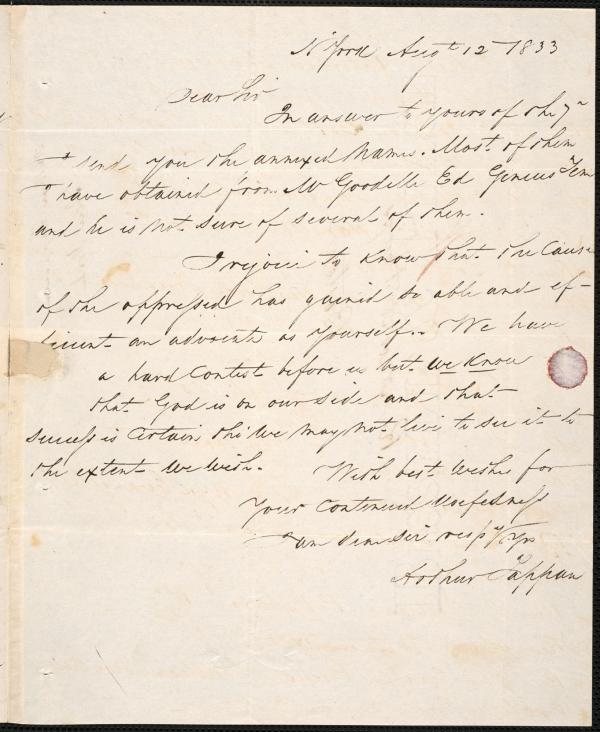 N York Augt 12 1833
Dear Sir
In answer to yours of the 7th
I send you the annexed Names. Most of them
I have obtained from Mr Goodelle Ed Genius Tem
and he is not sure of several of them.
I rejoice to know that the Cause
of the oppressed has gained so able and ef-
ficient an advocate as yourself. We have
a hard Contest before us but we know
that God is on our side and that
success is Certain tho' we may not live to see it to
the extent we wish. With best wishes for
Your Continued Usefulness
I am dear sir respy Yrs
Arthur Tappan